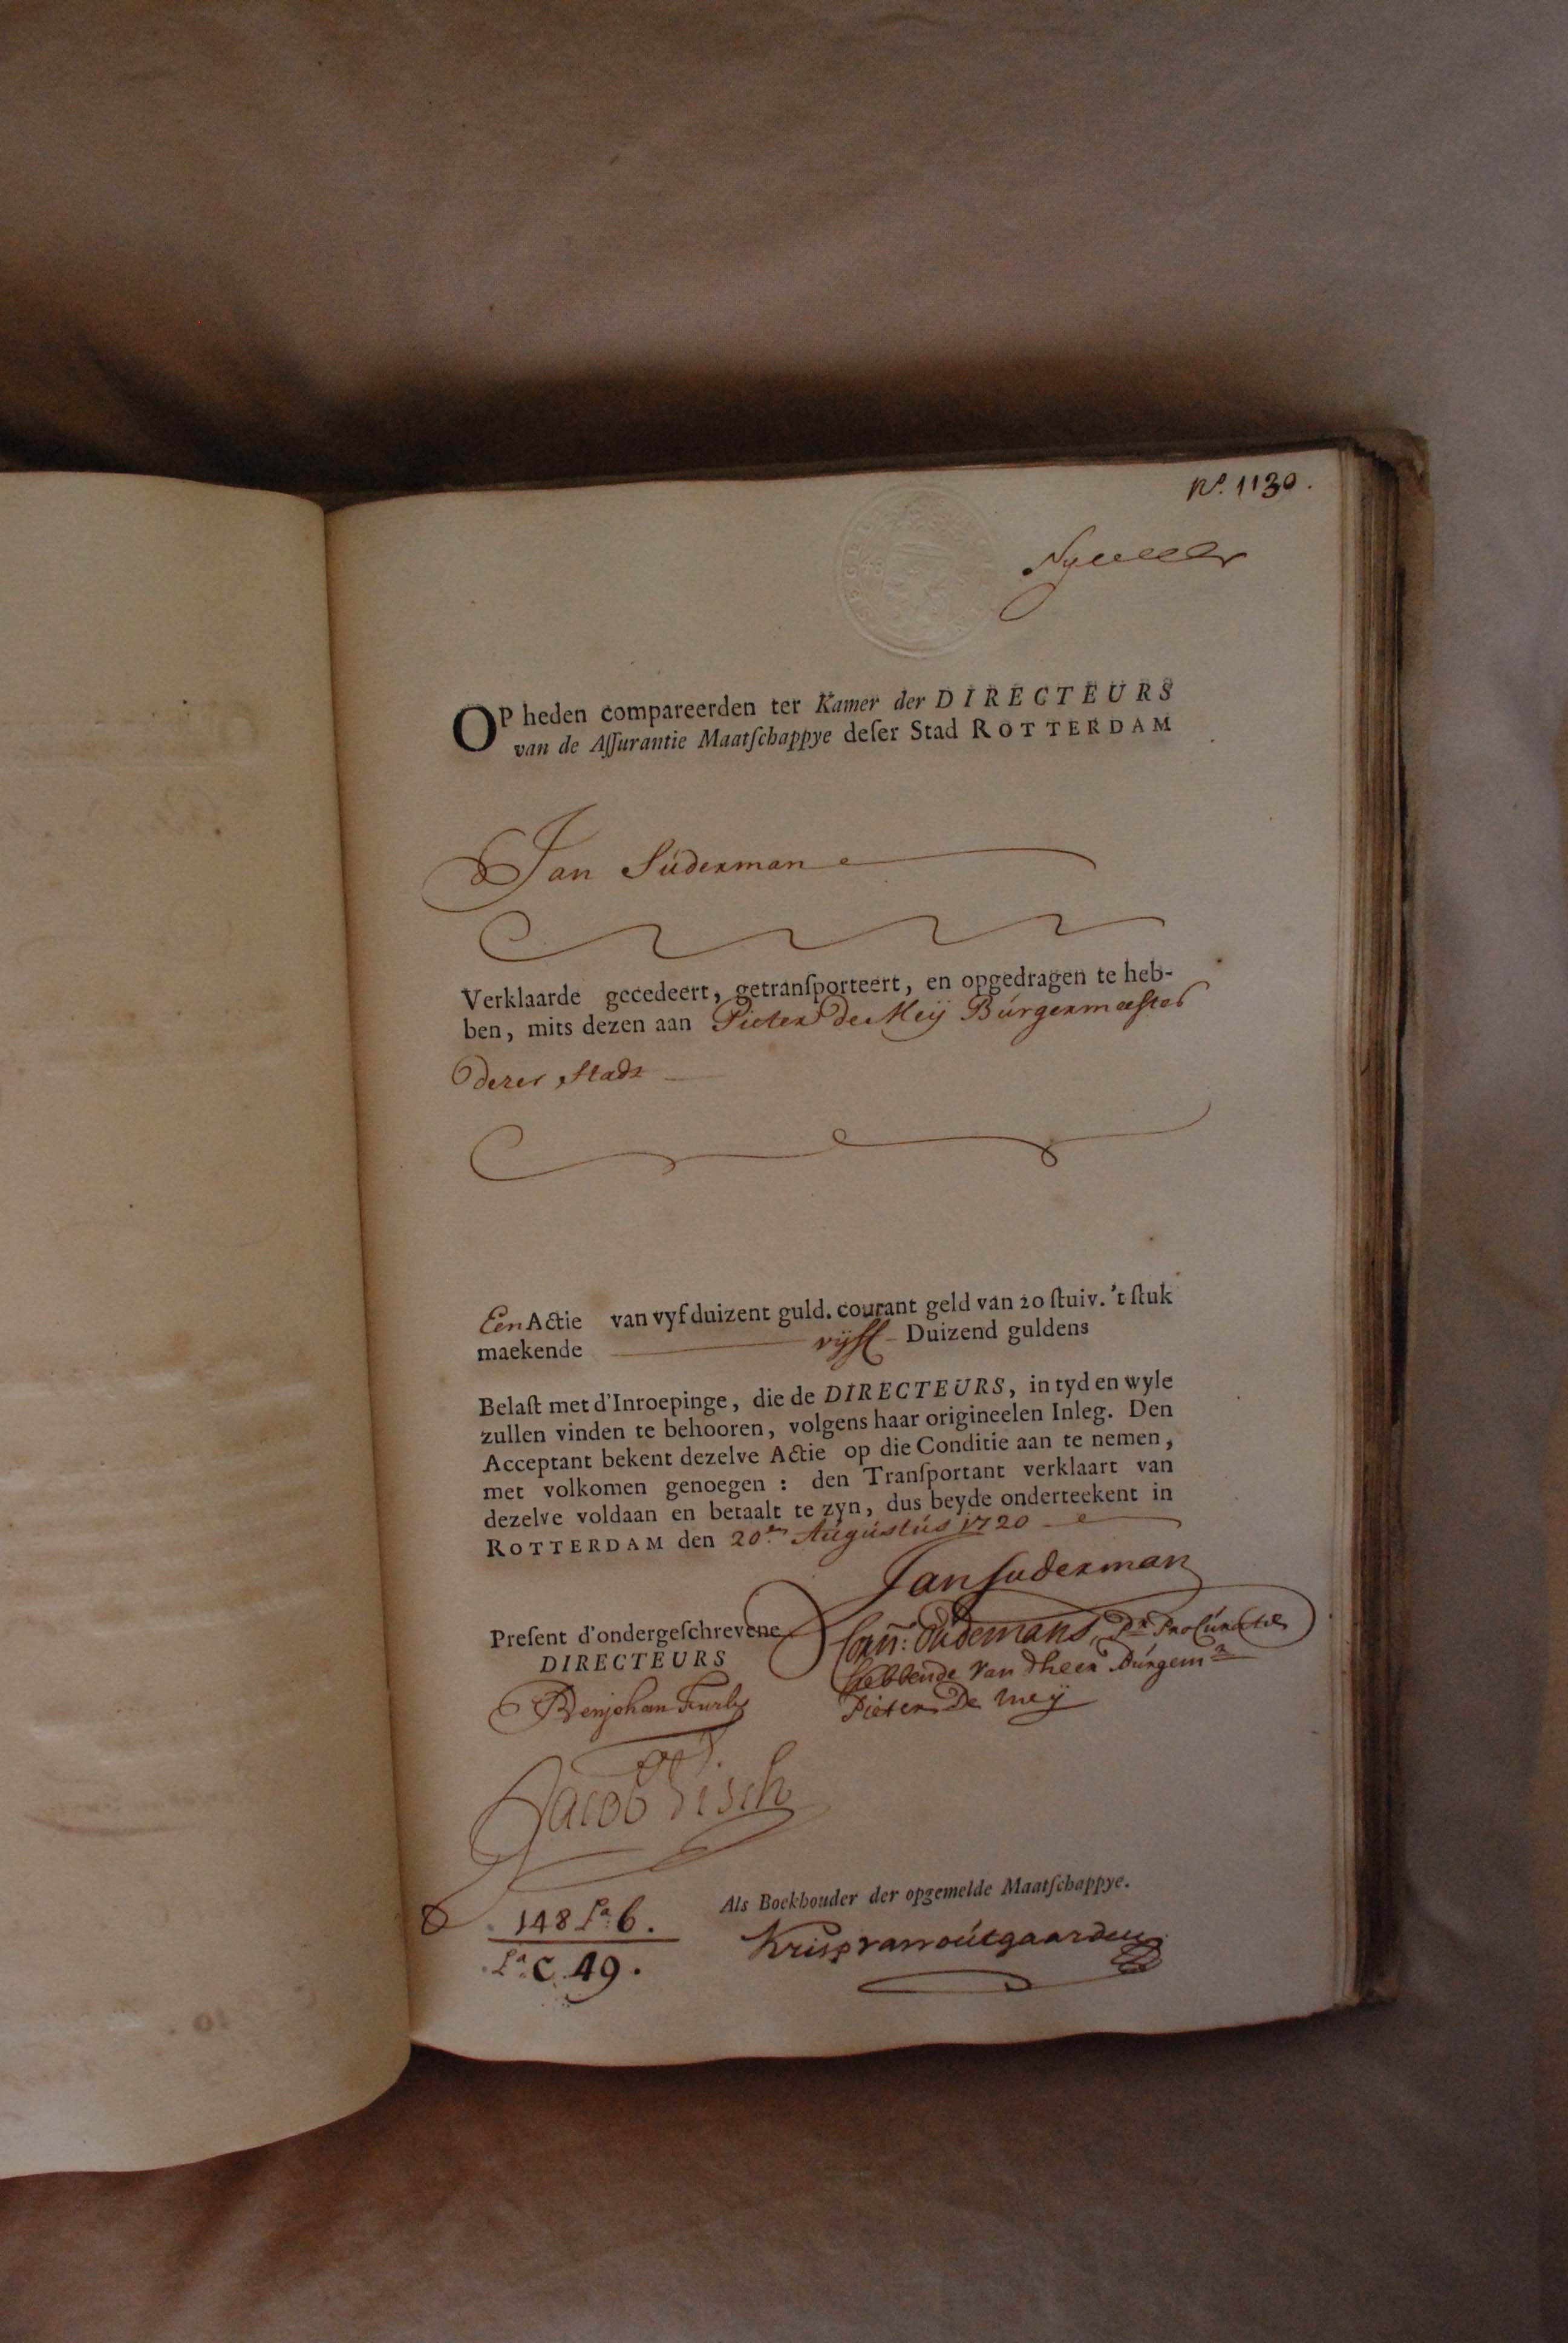 No. 1130.
OP heden compareerden ter Kamer der DIRECTEURS
van de Aſſurantie Maatſchappye deſer Stad ROTTERDAM
Jan Súderman
Verklaarde gecedeert, getranſporteert, en opgedragen te heb-
ben, mits dezen aan Pieter De Meÿ Búrgermeester
dezer Stadt
Een Actie van vyf duizent guld. courant geld van 20 ſtuiv. 't ſtuk
maekende vijff Duizend guldens
Belaſt met d'Inroepinge, die de DIRECTEURS, in tyd en wyle
zullen vinden te behooren, volgens haar origineelen Inleg. Den
Acceptant bekent dezelve Actie op die Conditie aan te nemen,
met volkomen genoegen : den Tranſportant verklaart van
dezelve voldaan en betaalt te zyn, dus beyde onderteekent in
ROTTERDAM den 20en Aúgústús 1720
Jan Suderman
Preſent d'ondergeſchrevene
DIRECTEURS
Corn: Oudemans, Pr Procúratie
hebbende van dheer Búrgemr
Pieter De Meÿ
Benjohan Furly
Jacob Visch
Als Boekhouder der opgemelde Maatſchappye.
148 La. 6.
La. C. 49.